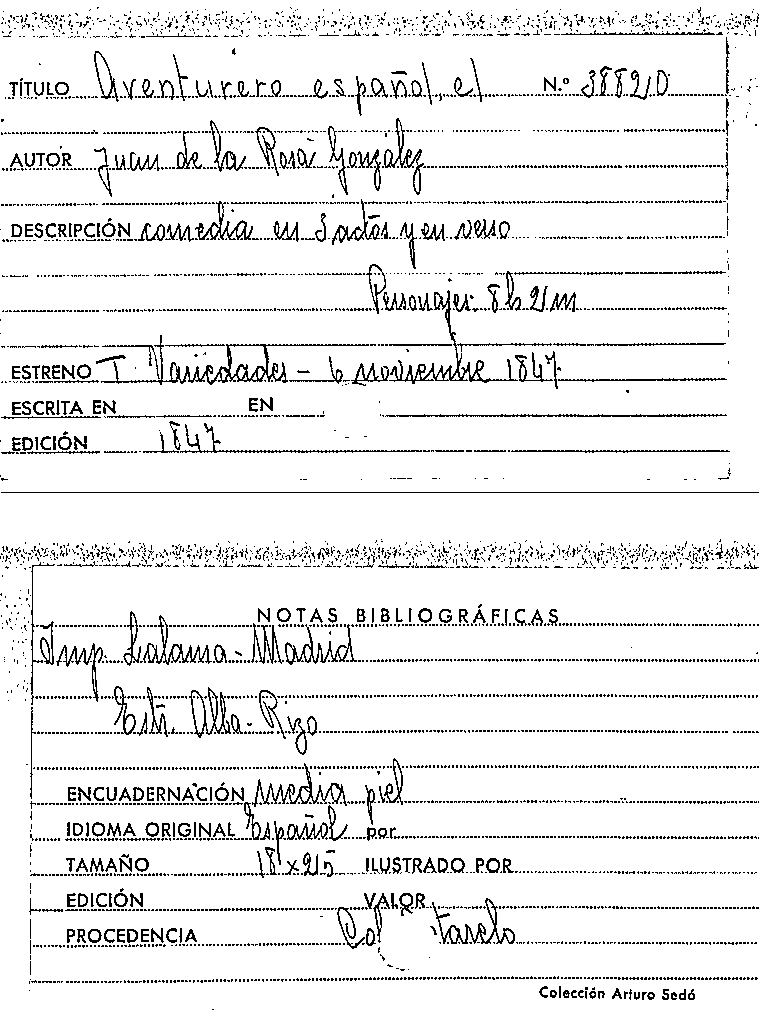 TÍTULO Aventurero español, el N.º 38820
AUTOR Juan de la Rosa González
DESCRIPCIÓN comedia en 3 actos y en verso
Personajes: 8 h 2 m
ESTRENO T. Variedades - 6 noviembre 1847
ESCRITA EN EN
EDICIÓN 1847
NOTAS BIBLIOGRÁFICAS
Imp. Lalama - Madrid
Estr. Alba - Rizo
ENCUADERNACIÓN media piel
IDIOMA ORIGINAL Español por
TAMAÑO 18 x 25 ILUSTRADO POR
EDICIÓN VALOR
PROCEDENCIA Col
Colección Arturo Sedó